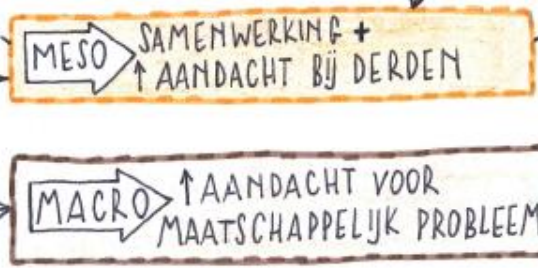 MESO
SAMENWERKING +
↑ AANDACHT BIJ DERDEN
MACRO
↑ AANDACHT VOOR
MAATSCHAPPELIJK PROBLEEM